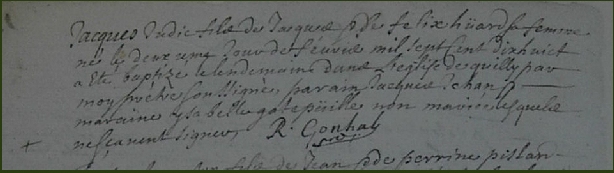 Jacques Judic fils de Jacques p de felix hüard sa femme
né le deuxieme jour de feuvrie mil sept cent dix huict
a été baptizé le lendemain dans l'eglise de quilly par
moy prêtre soussigne parain Jacques
maraine ysabelle non mariés lesquels
ne sçavent signer R. Gouhal
fils de Jean p de perrine